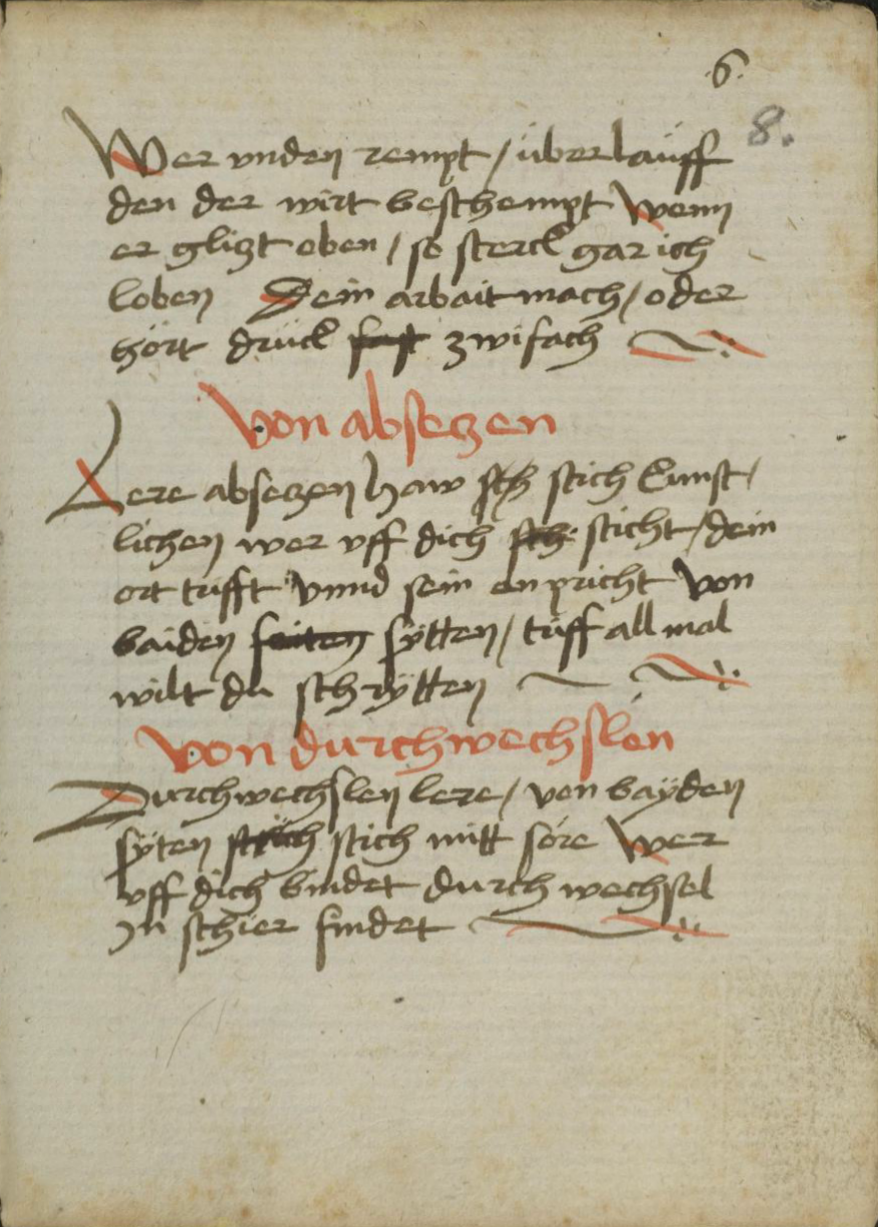 6.
8.
Wer vnden rempt / überlauff
den der wirt beschempt Wenn
er glizt oben / so sterck gar ich
loben Dein arbait mach / oder
hört drück fast zwifach
Von absezen
Lere absezen haw stich kunst /
lichen wer vff dich sticht / dein
ort trifft Vnnd sein en pricht Von
baiden seiten sÿtten / triff all mal
wilt du schrÿtten
Von durchwechslen
Durchwechslen lere / von baÿden
sÿten stich mitt sere Wer
vff dich bindet durch wechsel
In schier findet